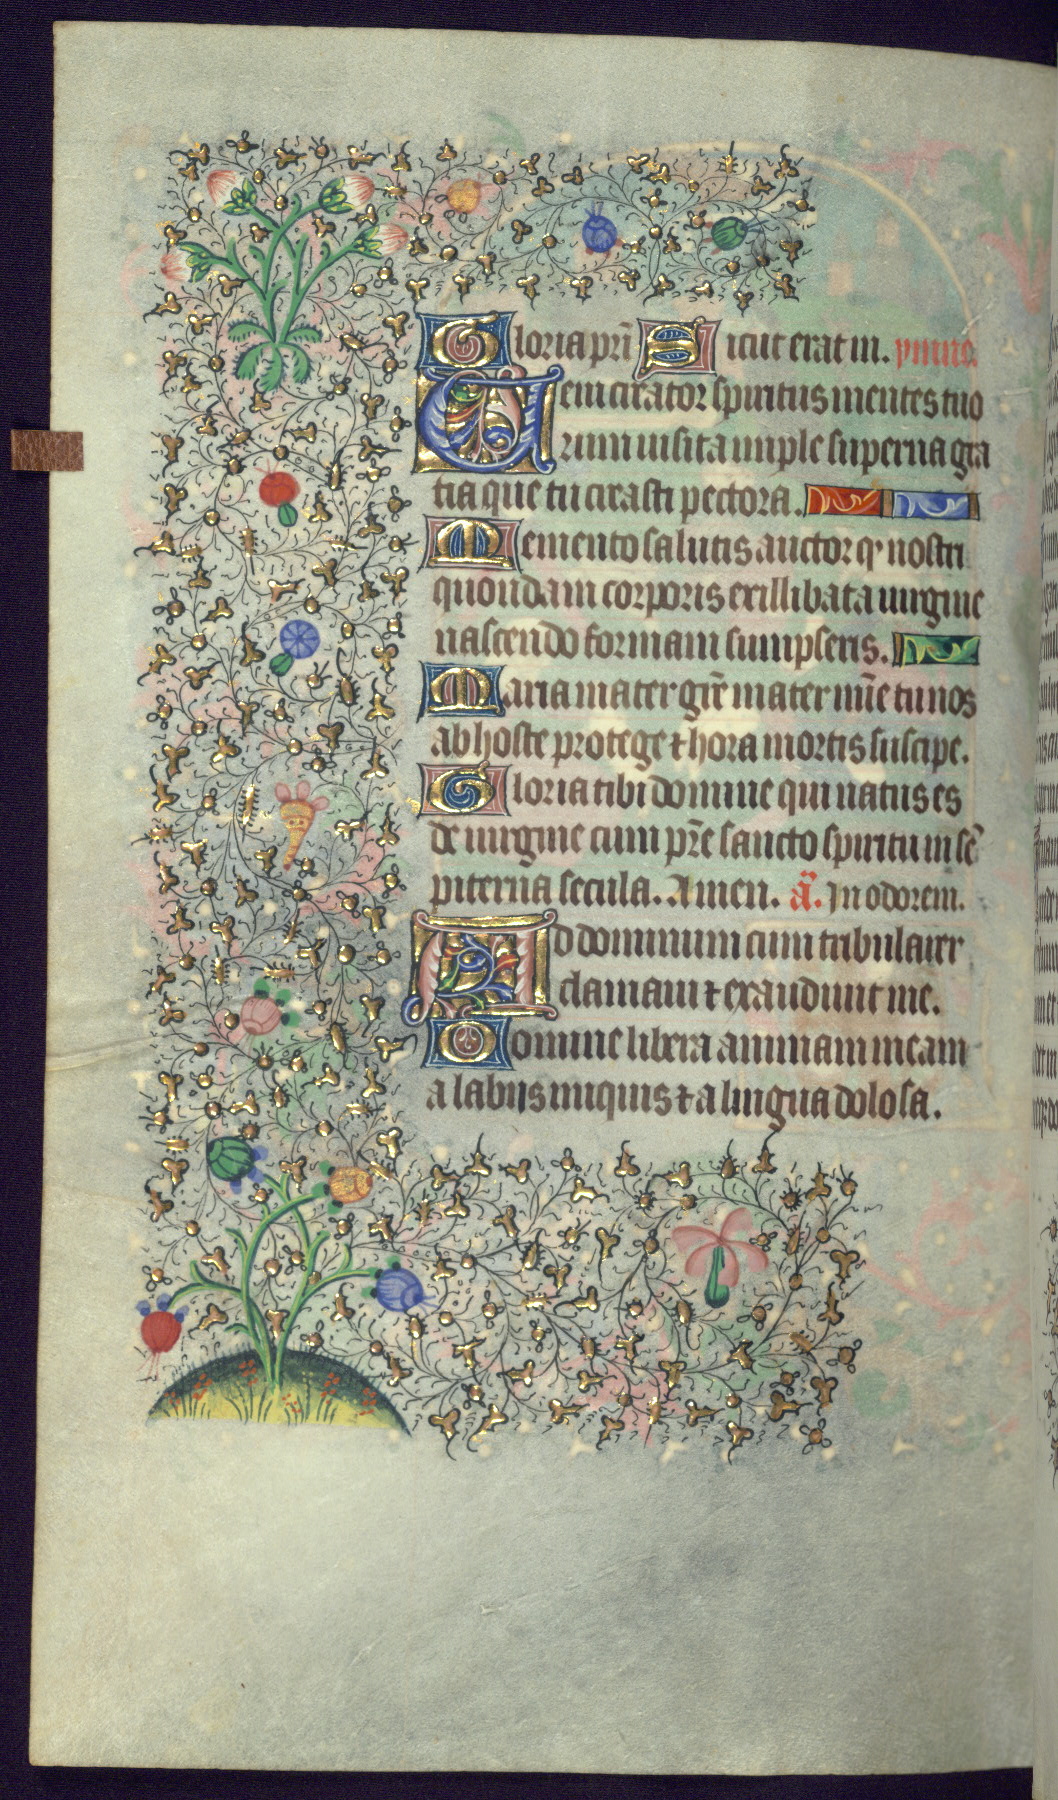 Gloria pri̅ Sicut erat in. ymne.
Veni creator spiritus mentes tuo
rum uisita imple superna gra
tia que tu creasti pectora.
Memento salutis auctor q̛ nostri
quondam corporis ex illibata uirgine
nascendo formam sumpseris.
Maria mater gr̅e mater mi̅e tu nos
ab hoste protege ⁊ hora mortis suscipe.
Gloria tibi domine qui natus es
de uirgine cum pr̅e sancto spiritu in se̅
piterna secula. Amen. a̅. In odorem.
Ad dominum cum tribularer
clamaui ⁊ exaudiuit me.
Domine libera animam meam
a labiis iniquis ⁊ a lingua dolosa.